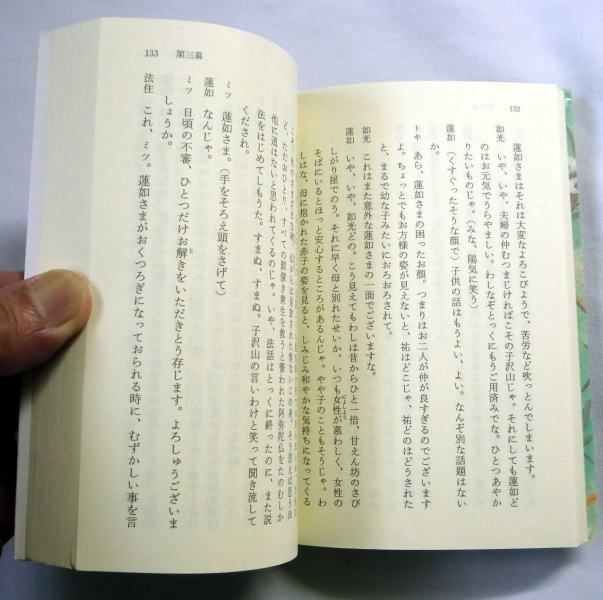 132
蓮如さまはそれは大変なよろこびようで、苦労など吹っとんでしまいます。
如光 いや、いや、夫婦の仲むつまじければこその子沢山じゃ。それにしても蓮如ど
のはお元気でうらやましい。わしなぞとっくにもうご用済みでな。ひとつあやか
りたいものじゃ。（みな、陽気に笑う）
蓮如 （くすぐったそうな顔で）子供の話はもうよい、よい。なんぞ別な話題はない
か。
トキ あら、蓮如さまの困ったお顔。つまりはお二人が仲が良すぎるのでございます
よ。ちょっとでもお方様の姿が見えないと、祐はどこじゃ、祐どのはどうされた
と、まるで幼な子みたいにおろおろされて。
如光 これはまた意外な蓮如さまの一面でございますな。
蓮如 いや、いや、如光どの。こう見えてもわしは昔からひと一倍、甘えん坊のさび
しがり屋でのう。それに早く母と別れたせいか、いつも女性が慕わしく、女性の
そばにいるとほっと安心するところがあるんじゃ。やや子のこともそうじゃ。わ
しはな、母に抱かれた赤子の姿を見ると、しみじみ和やかな気持ちになってくる
133 第三幕
ど、ただおひとり、すべての罪深き衆生を救うと誓われた阿弥陀仏をたのむしか
他に道はないと思われてくるのじゃ。いや、法話はとっくに終ったのに、また説
法をはじめてしもうた。すまぬ、すまぬ。子沢山の言いわけと笑って聞き流して
くだされ。
ミツ 蓮如さま。（手をそろえ頭をさげて）
蓮如 なんじゃ。
ミツ 日頃の不審、ひとつだけお解きをいただきとう存じます。よろしゅうございま
しょうか。
法住 これ、ミツ。蓮如さまがおくつろぎになっておられる時に、むずかしい事を言